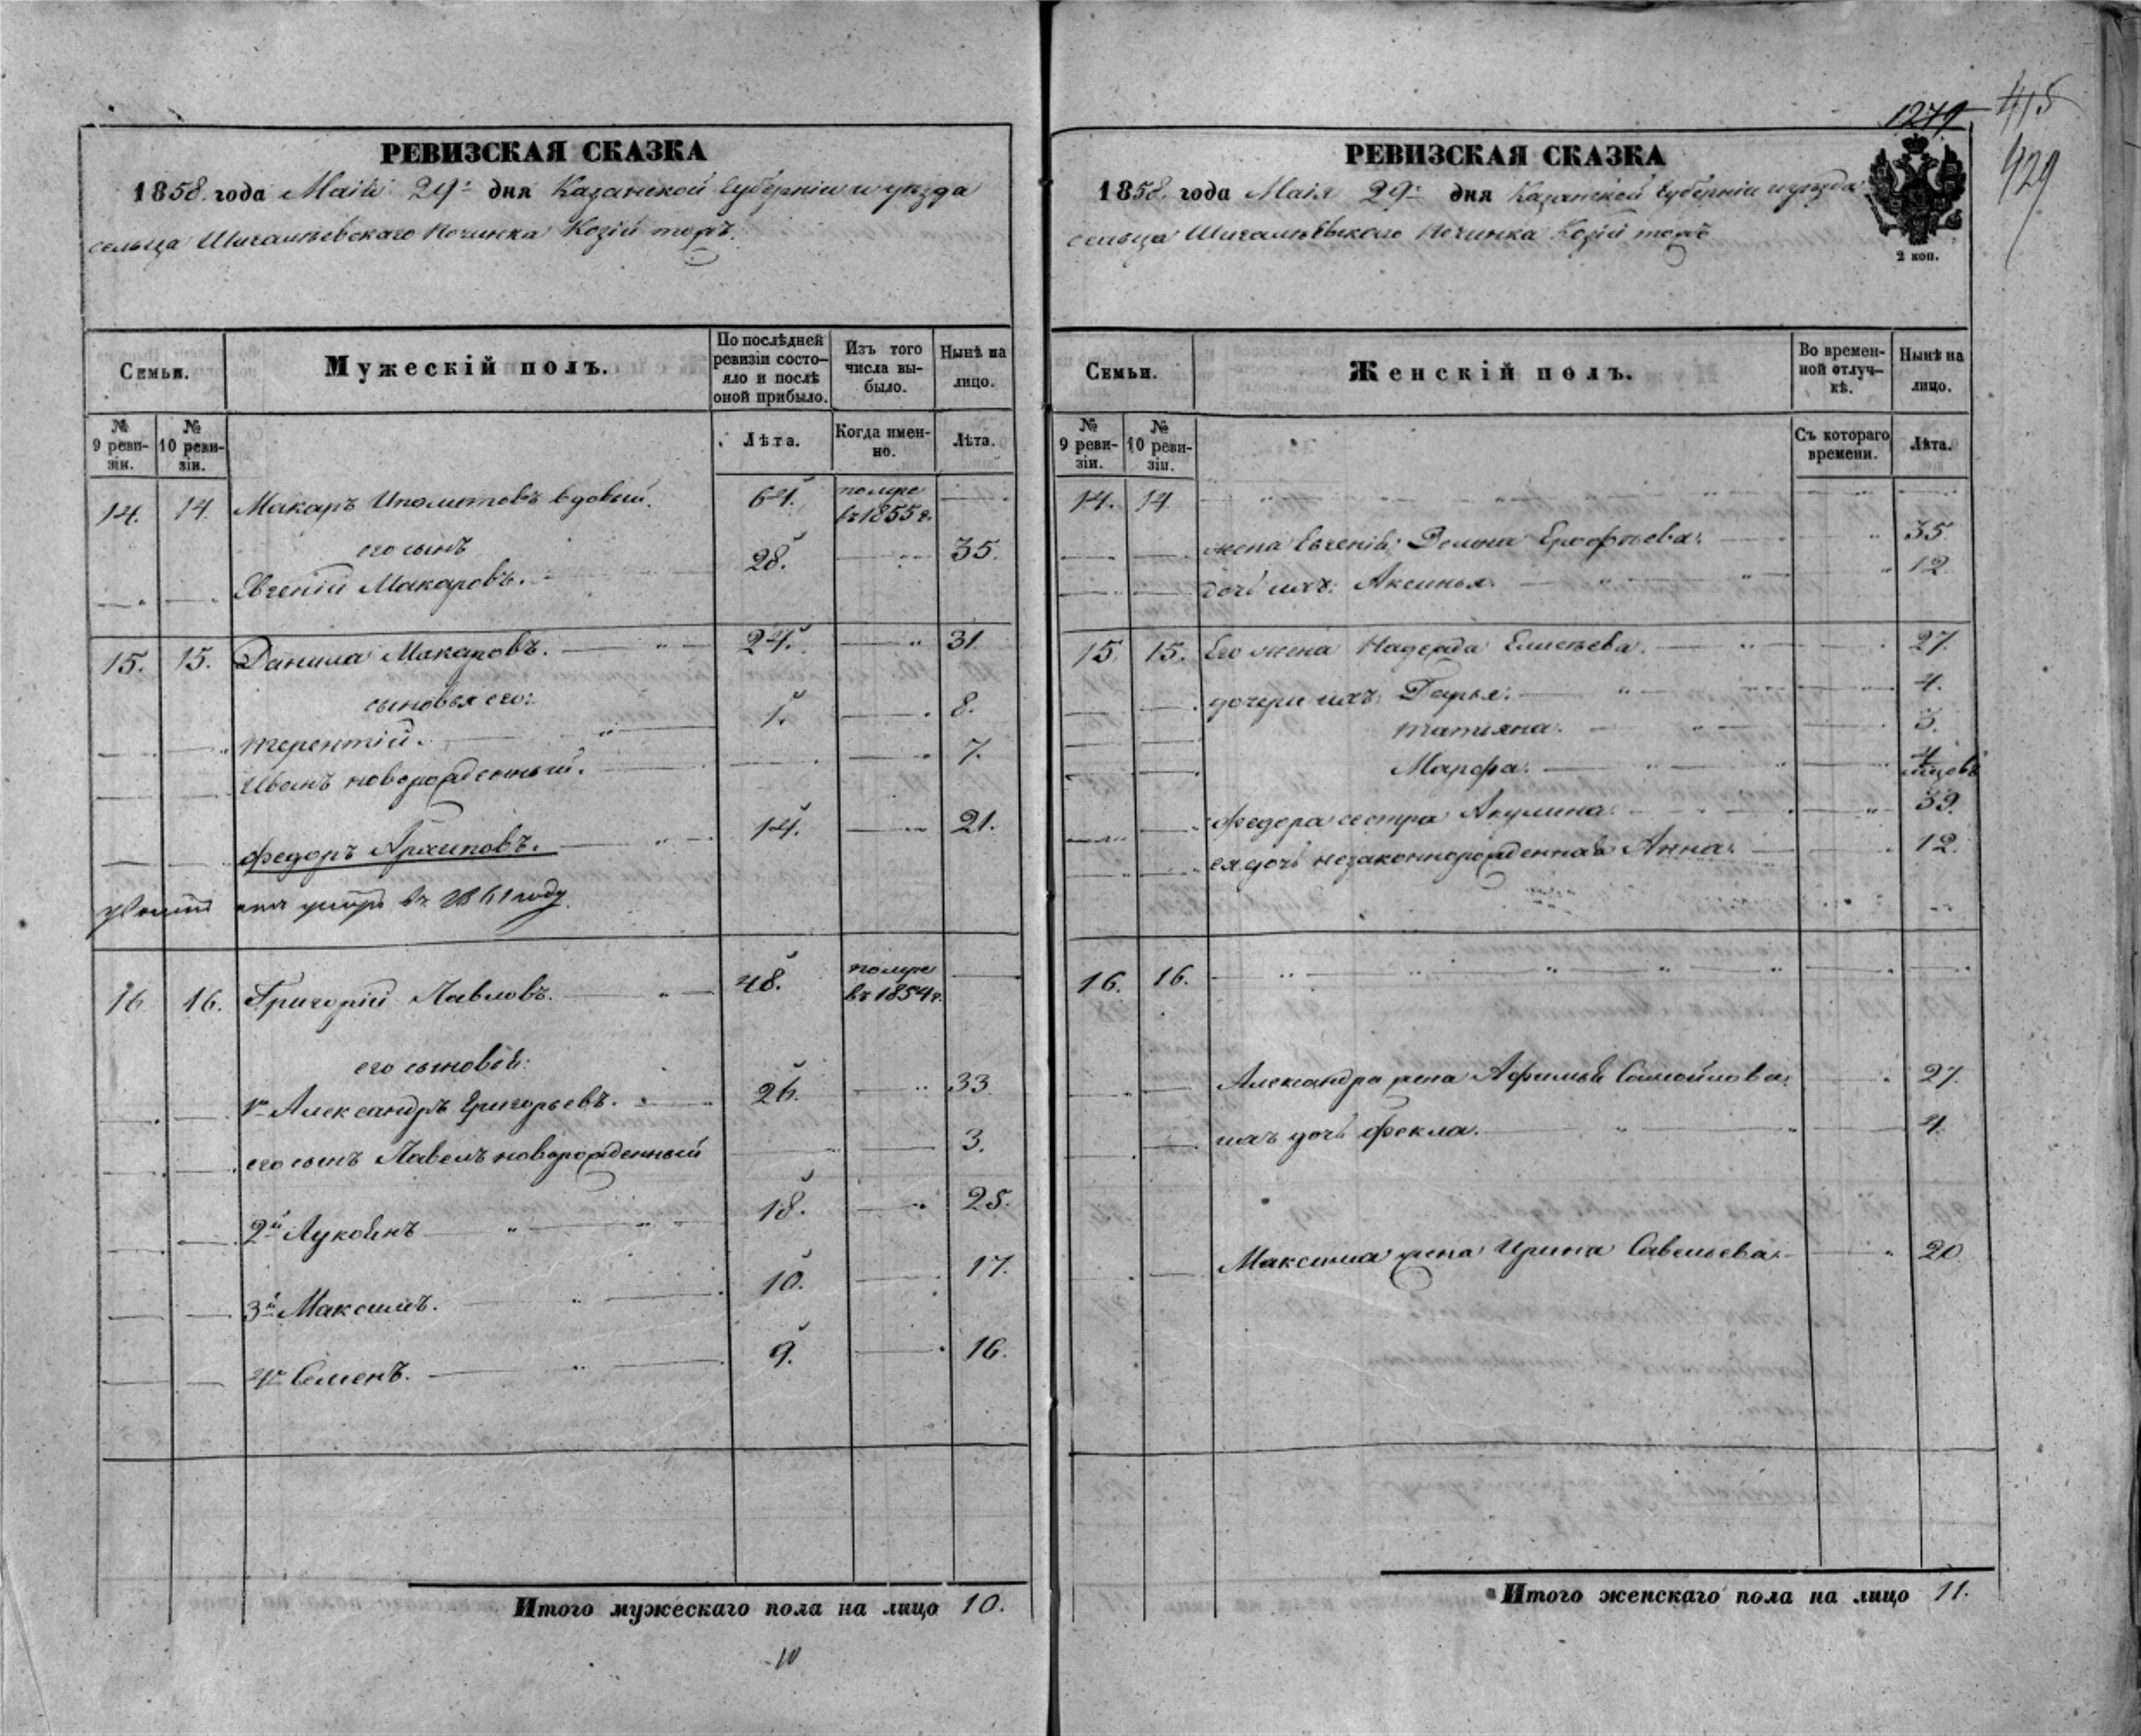 РЕВИЗСКАЯ СКАЗКА
1858. года Маія 29: дня Казанской Губерніи и уѣзда
сельца Шигалѣевскаго Починка Козій тожъ.
Семьи. Мужескій полъ. По послѣдней ревизіи состояло и послѣ оной прибыло. Изъ того числа выбыло. Нынѣ на лицо.
№ 9 ревизіи. № 10 ревизіи. Лѣта. Когда именно. Лѣта.
14. 14. Макаръ Иполитовъ вдовый. 64. помре въ 1855 г.
его сынъ
Евгеній Макаровъ. 28. 35.
15. 15. Данила Макаровъ. 24. 31.
сыновья его:
Терентій. 1. 8.
Иванъ новорожденный. 7.
Федоръ Архиповъ. 14. 21.
умре въ 1861 году
16. 16. Григорій Павловъ. 48. помре въ 1854 г.
его сыновья:
1й Александръ Григорьевъ. 26. 33.
его сынъ Павелъ новорожденный 3.
2й Лукоянъ 18. 25.
3й Максимъ. 10. 17.
4й Семенъ. 9. 16.
Итого мужескаго пола на лицо 10.
10
1279 415
429
РЕВИЗСКАЯ СКАЗКА
1858. года Маія 29: дня Казанской Губерніи и уѣзда
сельца Шигалѣевскаго Починка Козій тожъ
2 коп.
Семьи. Женскій полъ. Во временной отлучкѣ. Нынѣ на лицо.
№ 9 ревизіи. № 10 ревизіи. Съ котораго времени. Лѣта.
14. 14.
жена Евгенія: Ерофѣева. 35.
дочь ихъ: Аксинья. 12.
15. 15. Его жена Надежда Елисѣева. 27.
дочери ихъ: Дарья. 4.
Татьяна. 3.
Марфа. 4 мѣсяцовъ
Федора сестра Акулина. 39.
ея дочь незаконнорожденная Анна. 12.
16. 16.
Александра жена Афимья Самойлова. 27.
ихъ дочь Фекла. 4.
Максима жена Ирина Савельева. 20
Итого женскаго пола на лицо 11.